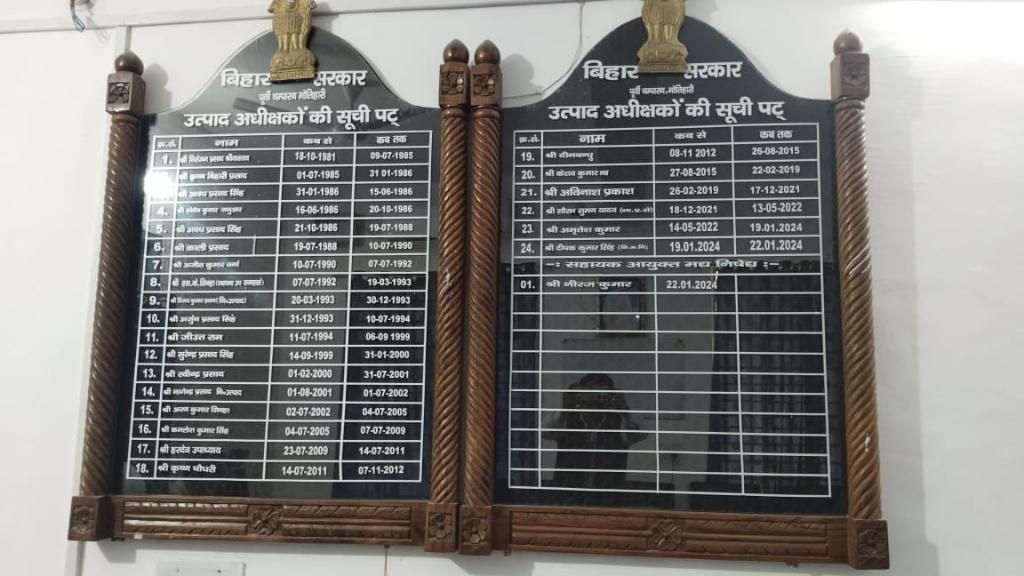 बिहार सरकार
पूर्वी चम्पारण मोतिहारी
उत्पाद अधीक्षकों की सूची पट्
क्र.सं. नाम कब से कब तक
1. श्री निरंजन प्रसाद श्रीवास्तव 18-10-1981 09-07-1985
श्री कृष्ण बिहारी प्रसाद 01-07-1985 31 01-1986
श्री अवध प्रसाद सिंह 31-01-1986 15-06-1986
4. श्री कुमार जमुआर 16-06-1986 20-10-1986
5. श्री अवध प्रसाद सिंह 21-10-1986 19-07-1988
6. श्री काली प्रसाद 19-07-1988 10-07-1990
7. श्री अजीत कुमार वर्मा 10-07-1990 07-07-1992
8. श्री एस.के. सिन्हा 07-07-1992 19-03-1993
9. श्री विजय कुमार 20-03-1993 30-12-1993
10. श्री अर्जुण प्रसाद सिंह 31-12-1993 10-07-1994
11. श्री जीउत राम 11-07-1994 06-09 1999
12. श्री सुरेन्द्र प्रसाद सिंह 14-09-1999 31-01-2000
13. श्री रवीन्द्र प्रसाद 01-02-2000 31-07-2001
14. श्री नागेन्द्र प्रसाद नि०उत्पाद 01-08-2001 01-07-2002
15. श्री अरुण कुमार सिन्हा 02-07-2002 04-07-2005
16. श्री कमलेश कुमार सिंह 04-07-2005 07-07-2009
17. श्री हरदेव उपाध्याय 23-07-2009 14-07-2011
18. श्री कृष्ण चौधरी 14-07-2011 07-11-2012
बिहार सरकार
पूर्वी चम्पारण,मोतिहारी
उत्पाद अधीक्षकों की सूची पट्
क्र.सं. नाम कब से कब तक
19. श्री दीनबन्धु 08-11 2012 26-08-2015
20. श्री केशव कुमार झा 27-08-2015 22-02-2019
21. श्री अविनाश प्रकाश 26-02-2019 17-12-2021
22. श्री सौरभ सुमन यादव 18-12-2021 13-05-2022
23. श्री अमृतेश कुमार 14-05-2022 19.01-2024
24. श्री दीपक कुमार सिंह 19.01-2024 22.01-2024
-: सहायक आयुक्त मद्य निषेध :-
01. श्री नीरज कुमार 22.01-2024